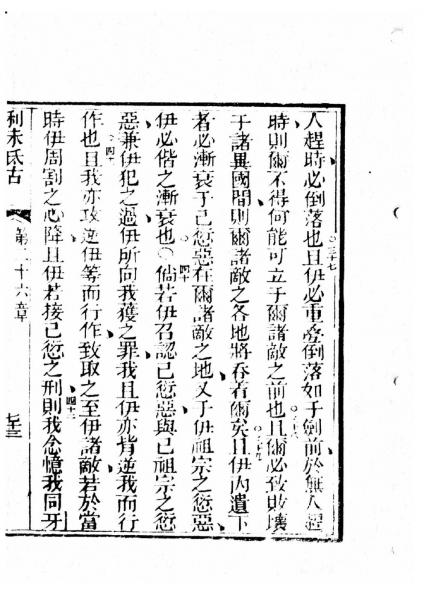 人趕時必倒落也且伊必重疊倒落如于劍前於無人趕
三十七
時則爾不得何能可立于爾諸敵之前也且爾必致敗壞
三十八
于諸異國間則爾諸敵之各地將吞着爾矣且伊內遺下
三十九
者必漸衰于己愆惡在爾諸敵之地又于伊祖宗之愆惡
伊必偕之漸衰也○倘若伊召認己愆惡與己祖宗之愆
四十
惡兼伊犯之過伊所向我獲之罪我且伊亦背逆我而行
作也且我亦攻逆伊等而行作致取之至伊諸敵若於當
四十一
時伊周割之心降且伊若接己愆之刑則我念憶我同牙
四十二
利未氏古
第二十六章
七十三